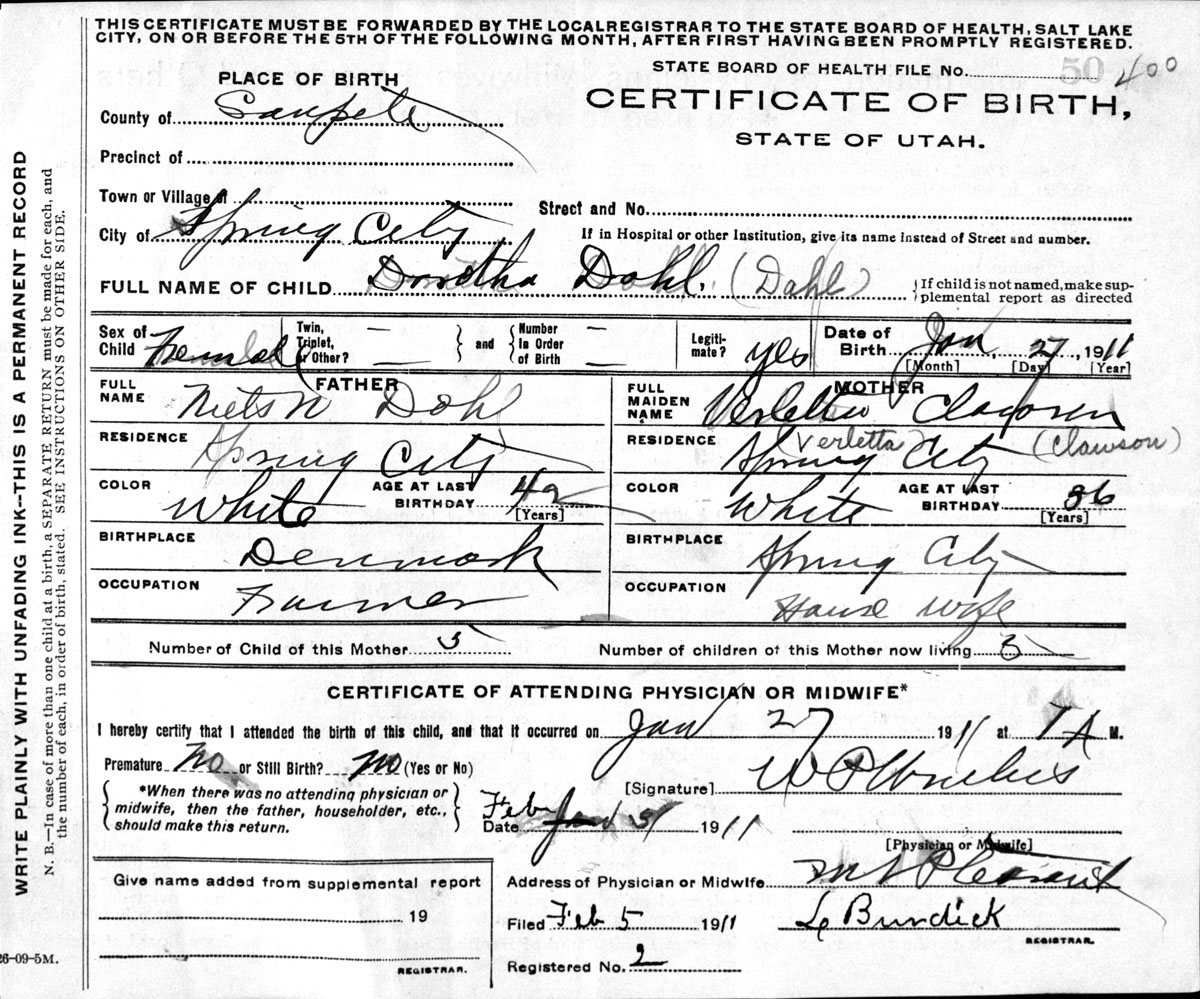 THIS CERTIFICATE MUST BE FORWARDED BY THE LOCAL REGISTRAR TO THE STATE BOARD OF HEALTH, SALT LAKE
CITY, ON OR BEFORE THE 5TH OF THE FOLLOWING MONTH, AFTER FIRST HAVING BEEN PROMPTLY REGISTERED.
STATE BOARD OF HEALTH FILE No. 50 400
PLACE OF BIRTH
CERTIFICATE OF BIRTH,
STATE OF UTAH.
County of Sanpete
Precinct of
Town or Village of
Street and No.
City of Spring City
If in Hospital or other Institution, give its name instead of Street and number.
FULL NAME OF CHILD Dorotha Dohl. (Dahl)
If child is not named, make sup-
plemental report as directed
Sex of Child Female
Twin, Triplet, or Other? —
and
Number In Order of Birth —
Legiti-mate? yes
Date of Birth Jan 27, 1911
[Month] [Day] [Year]
FATHER
FULL NAME Niels N Dohl
RESIDENCE Spring City
COLOR White
AGE AT LAST BIRTHDAY 42
[Years]
BIRTHPLACE Denmark
OCCUPATION Farmer
MOTHER
FULL MAIDEN NAME Verletta
(Verletta) (Clawson)
RESIDENCE Spring City
COLOR White
AGE AT LAST BIRTHDAY 36
[Years]
BIRTHPLACE Spring City
OCCUPATION House wife
Number of Child of this Mother 5
Number of children of this Mother now living 3
CERTIFICATE OF ATTENDING PHYSICIAN OR MIDWIFE*
I hereby certify that I attended the birth of this child, and that it occurred on Jan 27 1911 at 7 A M.
Premature No or Still Birth? No (Yes or No)
*When there was no attending physician or
midwife, then the father, householder, etc.,
should make this return.
[Signature]
Date Feb 3 1911
[Physician or Midwife]
Give name added from supplemental report
19
REGISTRAR.
Address of Physician or Midwife Mt Pleasant
Filed Feb 5 1911
Burdick
REGISTRAR.
Registered No. 2
26-09-5M.
WRITE PLAINLY WITH UNFADING INK—THIS IS A PERMANENT RECORD
N. B.—In case of more than one child at a birth, a SEPARATE RETURN must be made for each, and
the number of each, in order of birth, stated. SEE INSTRUCTIONS ON OTHER SIDE.